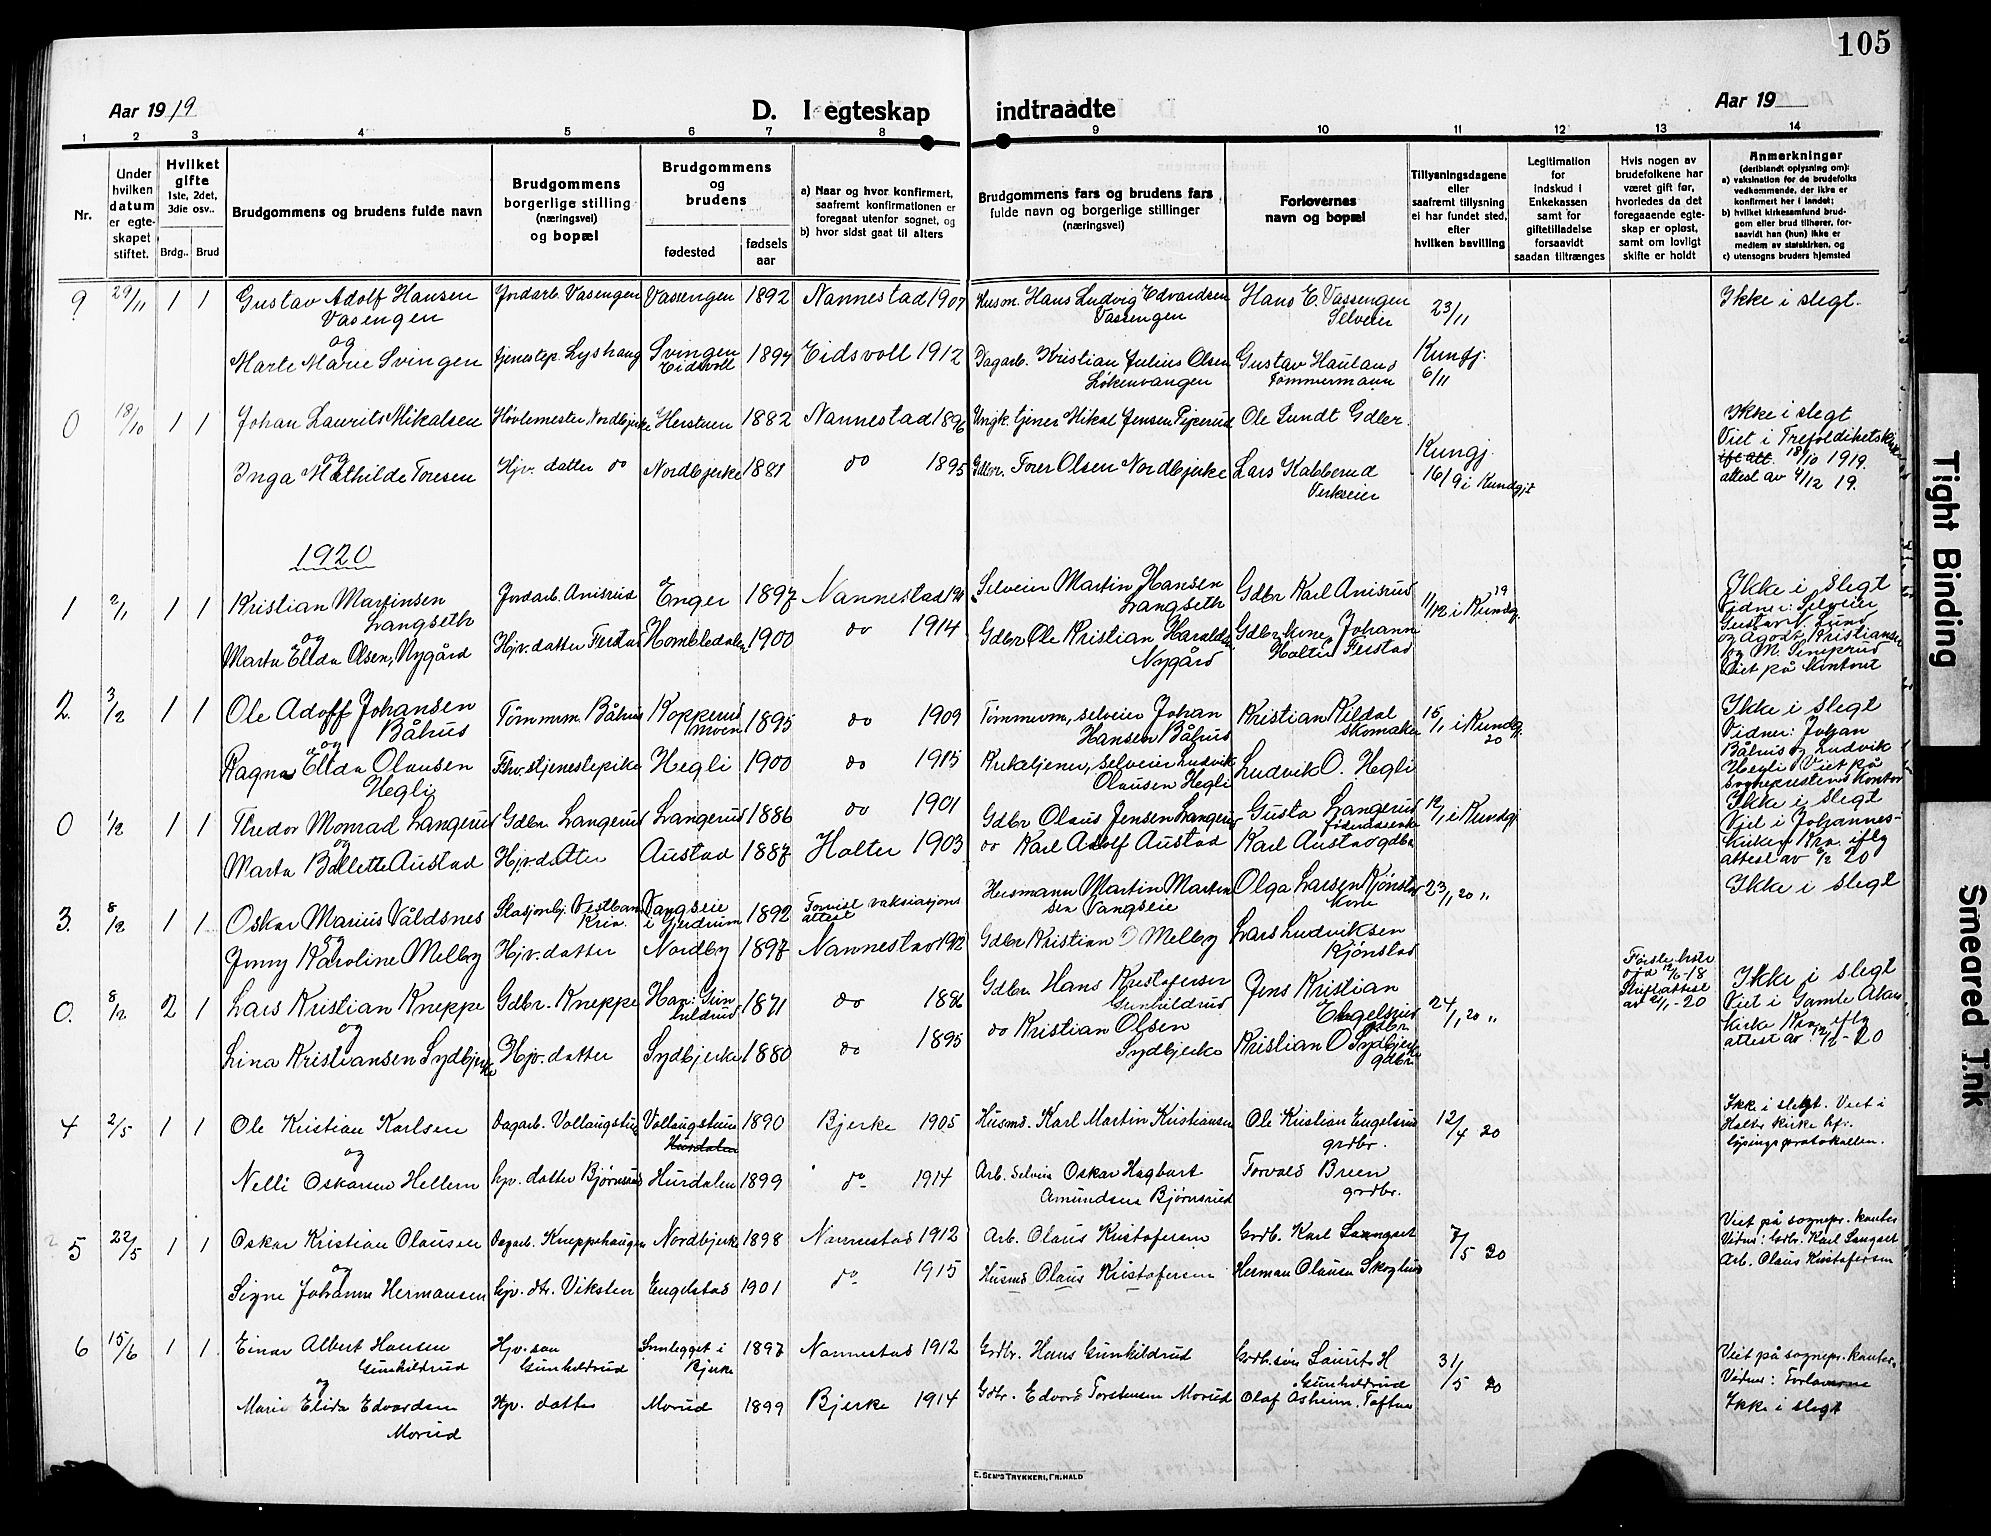 105
Aar 1919 D. I egteskap indtraadte Aar 19
1 2 3 4 5 6 7 8 9 10 11 12 13 14
Nr.
Under hvilken datum er egteskapet stiftet.
Hvilket gifte 1ste, 2det, 3die osv.. Brdg.. Brud
Brudgommens og brudens fulde navn
Brudgommens borgerlige stilling (næringsvei) og bopæl
Brudgommens og brudens
fødested fødsels aar
a) Naar og hvor konfirmert, saafremt konfirmationen er foregaat utenfor sognet, og
b) hvor sidst gaat til alters
Brudgommens fars og brudens fars fulde navn og borgerlige stillinger (næringsvei)
Forlovernes navn og bopæl
Tillysningsdagene eller saafremt tillysning ei har fundet sted, efter hvilken bevilling
Legitimation for indskud i Enkekassen samt for giftetilladelse forsaavidt saadan tiltrænges
Hvis nogen av brudefolkene har været gift før, hvorledes da det foregaaende egteskap er opløst, samt om lovligt skifte er holdt
Anmerkninger (deriblandt oplysning om): a) vaksination for de brudefolks vedkommende, der ikke er konfirmert her i landet; b) hvilket kirkesamfund brudgom eller brud tilhører, forsaavidt han (hun) ikke er medlem av statskirken, og c) utensogns bruders hjemsted
9 29/11 1 1 Gustav Adolf Hansen Vasengen Jordarb. Vasengen Vassengen 1892 Nannestad 1907 Husm. Hans Ludvig Edvardsen Vassengen Hans E. Vassengen Selveier 23/11 Ikke i slegt.
og
Marte Marie Svingen tjenestep. Lyshaug Svingen Eidsvoll 1894 Eidsvoll 1912 Dagarb. Kristian Julius Olsen Løkenvangen Gustav Hauland Tømmermann Kungj. 6/11
0 18/10 1 1 Johan Laurits Mikalsen Høvlemester Nordbjerke Herstuen 1882 Nannestad 1896 Mikal Jensen Piperud Ole Lundt Gdler. Ikke i slegt
og
Inga Mathilde Toresen Hjv. datter do Nordbjerke 1881 do 1895 Gdbr. Torer Olsen Nordbjerke Lars Kabberud Verkseier Kungj. 16/9 i Kundgjt Viet i Trefoldihetsk 18/10 1919. attest av 4/12 19.
1920
1 2/1 1 1 Kristian Martinsen Langseth Jordarb. Anisrud Enger 1897 Nannestad Selveier Martin Hansen Langseth Gdbr Karl Anisrud 11/12 19 i Kundg. Ikke i slegt
og
Marta Ellda Olsen, Nygård Hjv. datter Ferstad Hombledalen 1900 do 1914 Gdbr Ole Kristian Haralds Nygård Gdbrkone Johann Holter Ferstad Vidner: Selveier Gustav Lund og Agodt Kristiansen og M. Viet på Kontoret
2. 3/2 1 1 Ole Adolf Johansen Båhus Tømmrm. Båhus Kopperud moen 1895 do 1909 Tømmerm, selveier Johan Hansen Båhus Kristian Kildal Skomaker 15/1 i Kundg. 20 Ikke i slegt Vidner: Johan
og
Ragna Ellda Olausen Hegli Fhv. tjenestepike Hegli 1900 do 1915 Kirketjener, selveier Ludvik Olausen Hegli Ludvik O. Hegli Båhus og Ludvik Hegli. Viet på Sogneprestens Kontor
0 1/2 1 1 Thedor Monrad Langerud Gdbr. Langerud Langerud 1886 do 1901 Gdbr Olaus Jensen Langerud Gusta Langerud 12/1 i Kundg Ikke i slegt
og
Marta Bollette Austad Hjv. datter Austad 1887 Holter 1903 do Karl Adolf Austad Karl Austad gdbr Vjet i Johanneskirken Kra. iflg attest av 6/2 20
3. 8/2 1 1 Oskar Marius Våldsnes Stasjonbj. Vestban Kria. Vangseie i Gjerdrum 1892 Forvist vaksinasjons attest Husmann Martin Martinsen Vangseie Olga Larsen Kjønstad kone 23/1 20 " Ikke i slegt
og
Jenny Karoline Melby Hjv. datter Nordby 1897 Nannestad 1912 Gdbr Kristian O Melby Lars Ludviksen Kjønstad
0. 8/2 2 1 Lars Kristian Kneppe Gdbr. Kneppe Han: Gunhildrud 1871 do 1886 Gdbr. Hans Kristofersen Gunhildrud Jens Kristian Engelsrud gdbr. 24/1 20 " Første hstr død 12/6-18 Skifteattest av 21/1-20 Ikke i slegt
og
Lina Kristiansen Sydbjerke Hjv. datter Sydbjerke 1880 do 1895 do Kristian Olsen Sydbjerke Kristian O Sydbjerke gdbr. Viet i Gamle Aker kirke Kra. iflg attest av 12/2-20
4 2/5 1 1 Ole Kristian Karlsen Dagarb. Vollaugstuen Vollaugstuen Hurdalen 1890 Bjerke 1905 Husmd. Karl Martin Kristiansen Ole Kristian Engelsrud grdbr. 12/4 20 Ikke i slegt. Viet i Holter kirke hft. lysningsprotokollen.
og
Nelli Oskarsen Hellem hjv. datter Bjørnsrud Hurdalen 1899 do 1914 Arb. Selveier Oskar Hagbart Amundsen Bjørnsrud Torvald Breen grdbr.
5 22/5 1 1 Oskar Kristian Olausen Dagarb. Kneppehaugen Nordbjerke 1898 Nannestad 1912 Arb. Olaus Kristofersen Grdb. Karl Langset 7/5 20 Viet på sognepr. kontor Vidner: Grdbr. Karl Langset Arb. Olaus Kristofersen
og
Signe Johanne Hermansen hjv. dtr. Viksten Engelstad 1901 do 1915 Husmd Olaus Kristofersen Herman Olausen Skoglund
6 15/6 1 1 Einar Albert Hansen Gunhildrud Hjv. søn Gunhildrud i Bjerke 1897 Nannestad 1912 Grdbr. Hans Gunhildrud Grdb.søn Laurits H Gunhildrud 31/5 20 Viet på sognepr. kontor. Vidner: Forloverne
og
Marie Elida Edvardsen Morud Hjv. datter Morud 1899 Bjerke 1914 Gdbr. Edvard Torstensen Morud Olaf Åsheim, Toftner Ikke i slegt
E. SEM'S TRYKKERI, FR.HALD
Tight Binding
Smeared Ink